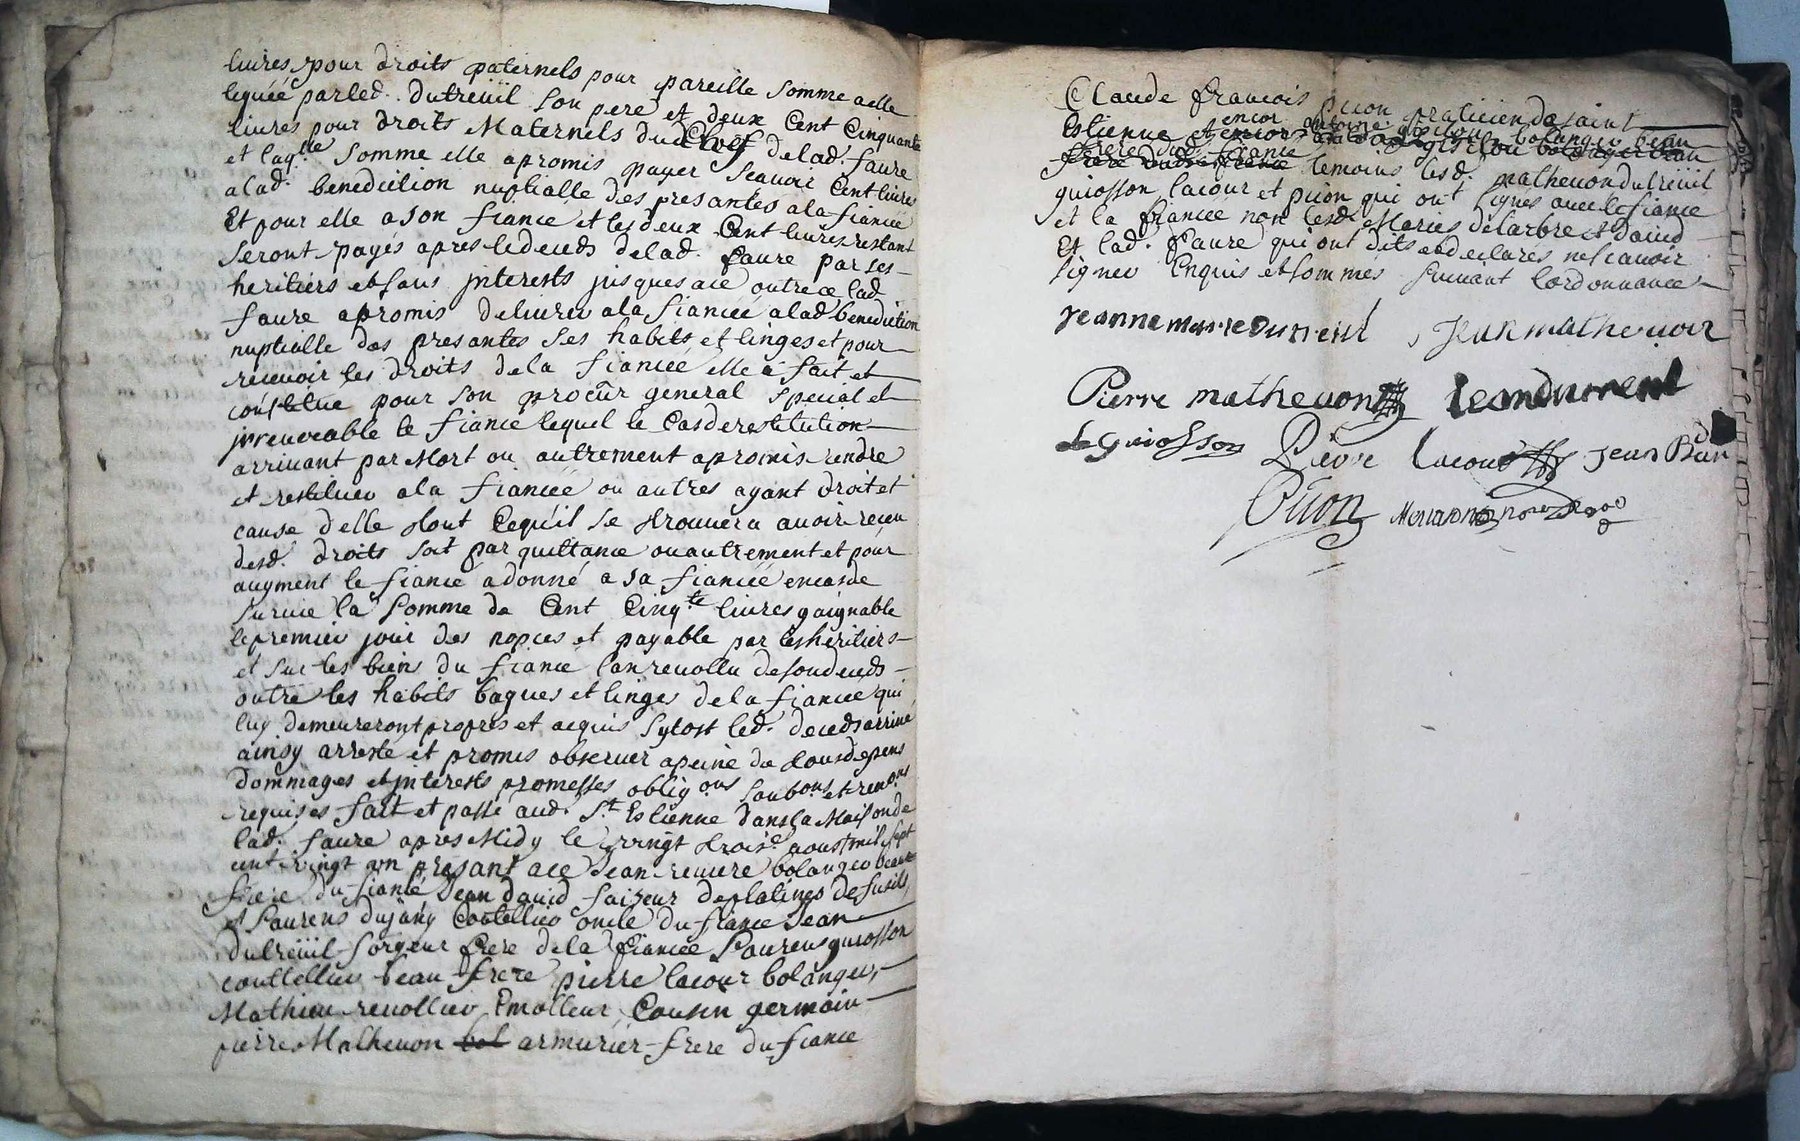 livres pour droits paternels pour pareille somme a elle
leguée par led. dutreüil son pere et deux Cent Cinquante
livres pour droits Maternels du Chef de lad. faure
et laq.lle somme elle a promis payer scavoir Cent livres
a lad. benediction nuptialle des presantes a la fiancée
Et pour elle a son fiance et les deux Cent livres restant
seront payés apres le deceds de lad. faure par ses
heritiers et sans jnterests jusques a ce outre ce lad.
faure a promis delivrer a la fiancée a lad benediction
nuptialle des presantes ses habits et linges et pour
recevoir les droits de la fiancée elle a fait et
constitue pour son procūr general special et
jrrevocable le fiance lequel le Cas de restitution
arrivant par Mort ou autrement a promis rendre
et restituer a la fiancée ou autres ayant droit et
cause d'elle tout Ce qu'il se trouvera avoir receu
desd. droits soit par quittance ou autrement et pour
augment le fiancé a donné a sa fiancée en cas de
survie la somme de Cent Cinq.te livres gaignable
le premier jour des nopces et payable par les heritiers
et sur les biens du fiancé l'an revollu de son deceds
outre les habits bagues et linges de la fiancée qui
luy demeureront propres et acquis sytost led. deceds arrivé
ainsy arresté et promis observer a peine de tous depens
dommages et jnterests promesses oblig.ons soub.ons et renons
requises fait et passé aud. St Estienne dans la Maison de
lad. faure apres Midy le vingt trois.e aoust mil sept
cent vingt un presant a ce Jean reviere bolanger beau
frere du fiancé Jean david faizeur de platines de fusils
et Laurens dujany Coutellier oncle du fiance Jean
dutreüil forgeur frere de la fiancée Laurens guiosson
couttellier beau frere pierre lacour bolanger,
Mathieu revollier Emolleur Cousin germain
pierre Mathevon bol armurier frere du fiance
Claude francois pion praticien de saint
Estienne et encor antoine bolanger beau
frere dud. fiancé
temoins lesd. mathevon dutreüil
guiosson lacour et pion qui ont signés avec le fiance
et la fiancée non lesd. Maries delarbre et david
Et lad. faure qui ont dits et declarés ne scavoir
signer Enquis et sommés suivant l'ordonnance
Jeanne marie dutreul Jean mathevon
Pierre mathevon Jean dutreul
L Guiosson Pierre Lacour Jean
Pion